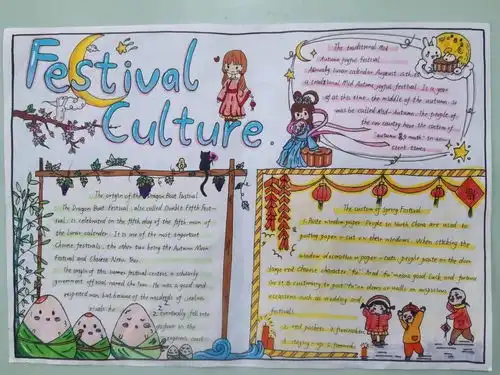 Festival
Culture.
The traditional Mid
Autumn joyful festival
lunar calendar August is the
a traditional Mid Autumn joyful festival. Is a year
of at this time, the middle of the autumn, is
was be called Mid-Autumn. The people of
the our country have the custom of
"autumn
ient times
The origin of the Dragon Boat Festival
The Dragon Boat Festival, also called Double Fifth Festi-
val, is celebrated on the fifth day of the fifth moon of
the lunar calendar. It is one of the most important
Chinese festivals, the other two being the Autumn Moon
Festival and Chinese New Year.
The origin of this summer festival centers a scholarly
government official named Chu Yuan. He was a good and
respected man, but because of the misdeeds of jealous
rivals he
eventually fell into
disfavor in the
emperor's court.
The custom of Spring Festival
1. Paste window paper: People in North China are used to
pasting paper-cut on their windows. When sticking the
window decoration paper-cuts, people paste on the door
large red Chinese character "fu". Red "fu" means good luck and fortune
so it is customary to post "fu" on doors or walls on auspicious
occasions such as wedding and
festivals.
2. red packets 3. firecracker